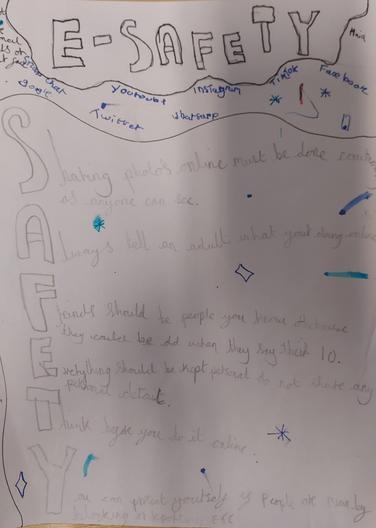 E-SAFETY
Snap chat
google
Youtoube
Instagram
Tiktok
Facebook
Twitter
whatsapp
Sharing photo's online must be done
as anyone can see.
Always tell an adult what your doing online
Friends should be people you know
they could be old when they say their 10.
Everything should be kept personal do not share any
personal details.
Think before you do it online.
You can protect yourself if people are by
blocking